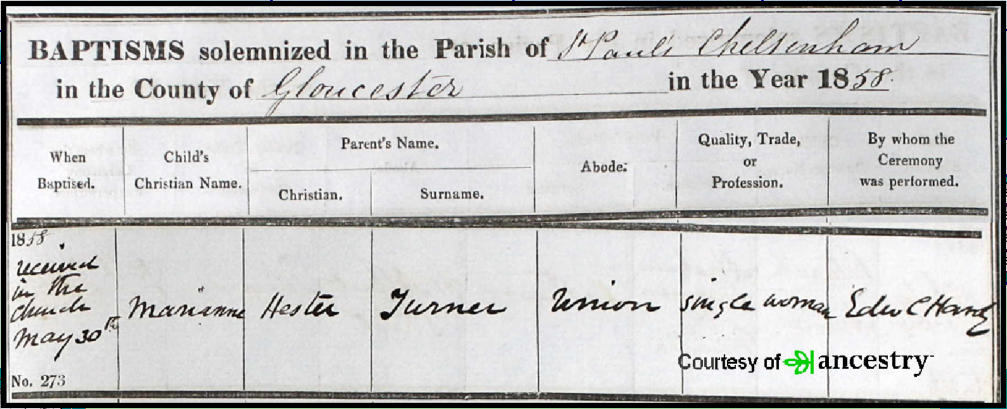 BAPTISMS solemnized in the Parish of St Pauls Cheltenham
in the County of Gloucester in the Year 1858.
When Baptised.
Child's Christian Name.
Parent's Name.
Christian.
Surname.
Abode.
Quality, Trade, or Profession.
By whom the Ceremony was performed.
1858.
received
in the
church
May 30th
Marianne
Hester
Turner
Union
single woman
Edw C
No. 273
Courtesy of ancestry